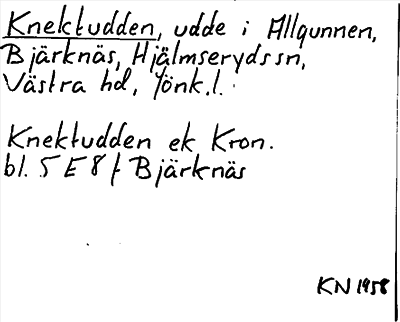 Knektudden, udde i Allgunnen,
Bjärknäs, Hjälmseryds sn,
Västra hd, Jönk.l.
Knektudden ek Kron.
bl. 5 E 8 f Bjärknäs
KN 1958